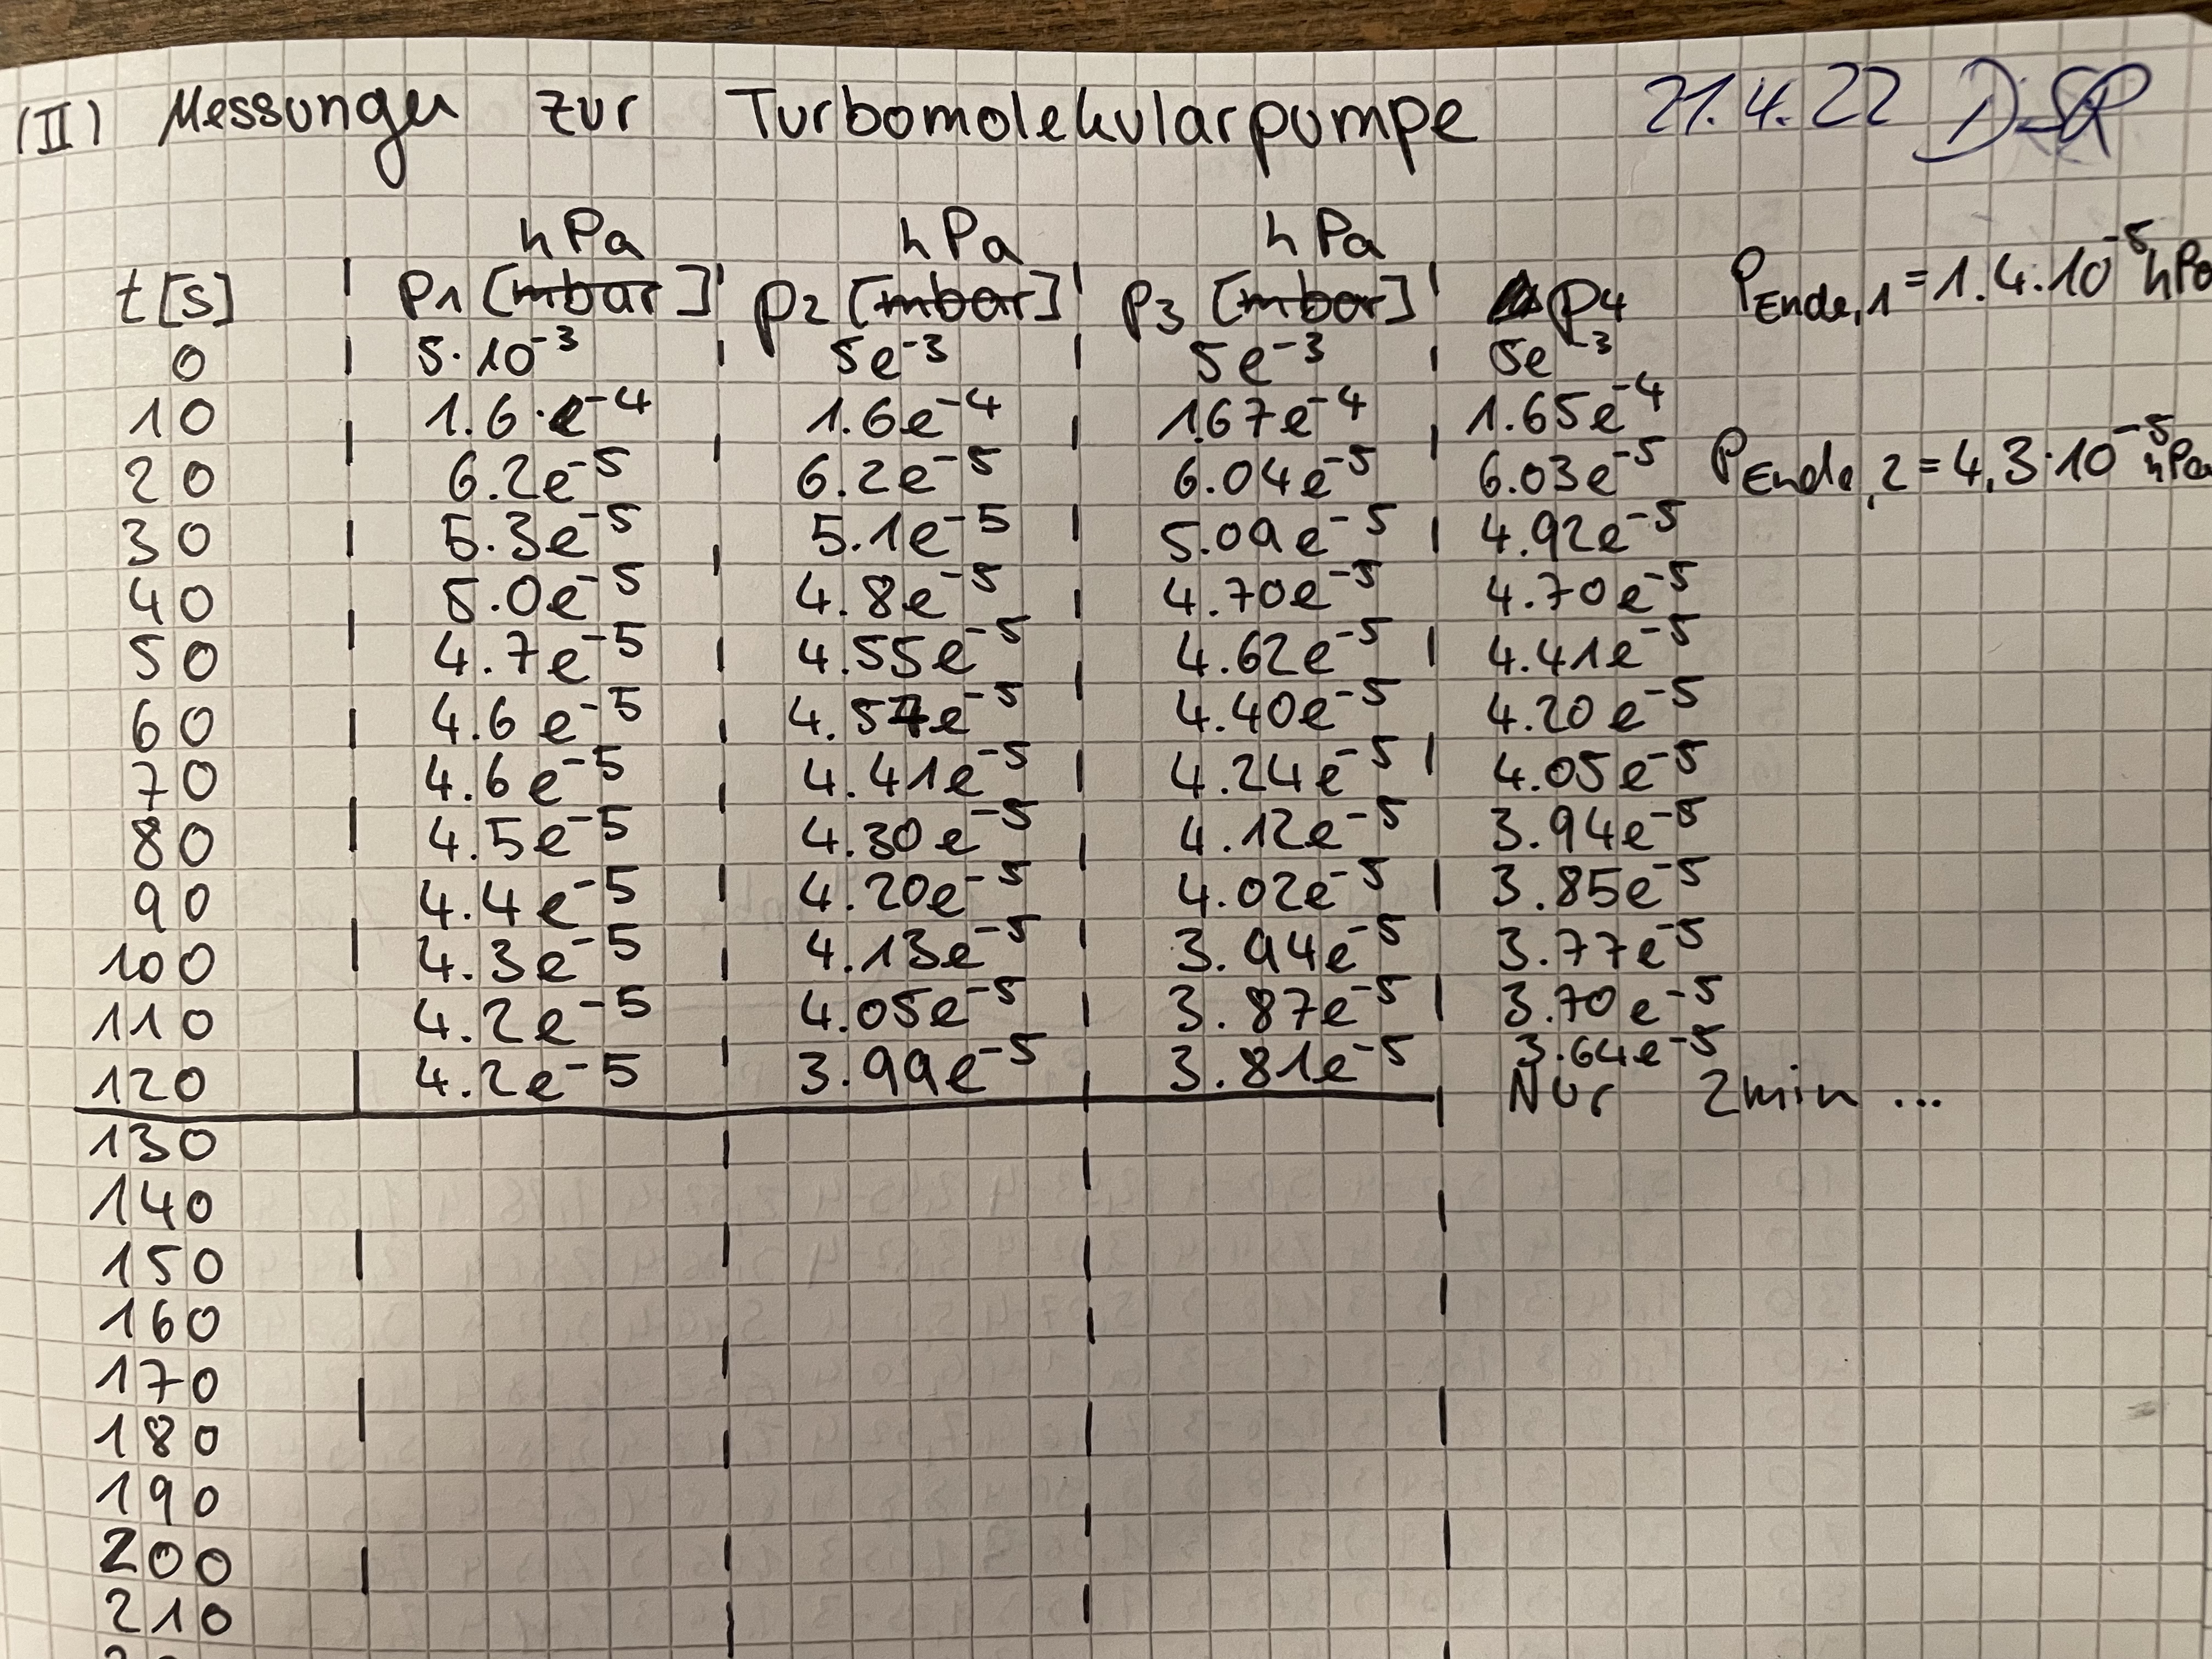 (II) Messungen zur Turbomolekularpumpe 21.4.22
hPa hPa hPa
t[s] | p1 [mbar] | p2 [mbar] | p3 [mbar] | p4 PEnde,1 = 1.4·10⁻⁵ hPa
0 | 5·10⁻³ | 5e⁻³ | 5e⁻³ | 5e⁻³
10 | 1.6·e⁻⁴ | 1.6e⁻⁴ | 1.67e⁻⁴ | 1.65e⁻⁴
20 6.2e⁻⁵ 6.2e⁻⁵ 6.04e⁻⁵ 6.03e⁻⁵ PEnde,2 = 4,3·10⁻⁵ hPa
30 | 5.3e⁻⁵ | 5.1e⁻⁵ | 5.09e⁻⁵ | 4.92e⁻⁵
40 5.0e⁻⁵ 4.8e⁻⁵ | 4.70e⁻⁵ 4.70e⁻⁵
50 | 4.7e⁻⁵ | 4.55e⁻⁵ | 4.62e⁻⁵ | 4.41e⁻⁵
60 | 4.6e⁻⁵ | 4.57e⁻⁵ 4.40e⁻⁵ 4.20e⁻⁵
70 4.6e⁻⁵ | 4.41e⁻⁵ | 4.24e⁻⁵ | 4.05e⁻⁵
80 | 4.5e⁻⁵ 4.30e⁻⁵ | 4.12e⁻⁵ 3.94e⁻⁵
90 4.4e⁻⁵ | 4.20e⁻⁵ 4.02e⁻⁵ | 3.85e⁻⁵
100 | 4.3e⁻⁵ | 4.13e⁻⁵ | 3.94e⁻⁵ 3.77e⁻⁵
110 4.2e⁻⁵ 4.05e⁻⁵ | 3.87e⁻⁵ | 3.70e⁻⁵
120 | 4.2e⁻⁵ | 3.99e⁻⁵ | 3.81e⁻⁵ | 3.64e⁻⁵
Nur 2min ...
130
140
150
160
170
180
190
200
210